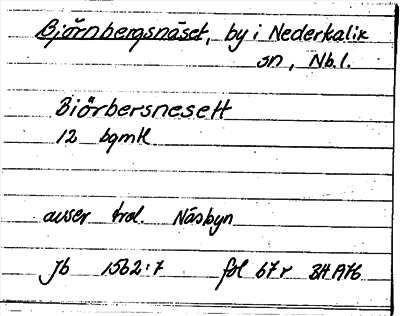 Björnbergsnäset, by i Nederkalix
sn, Nb.l.
Biörbersnesett
12 bgmk
avser trol. Näsbyn
Jb 1562:7 fol 67r BHA76